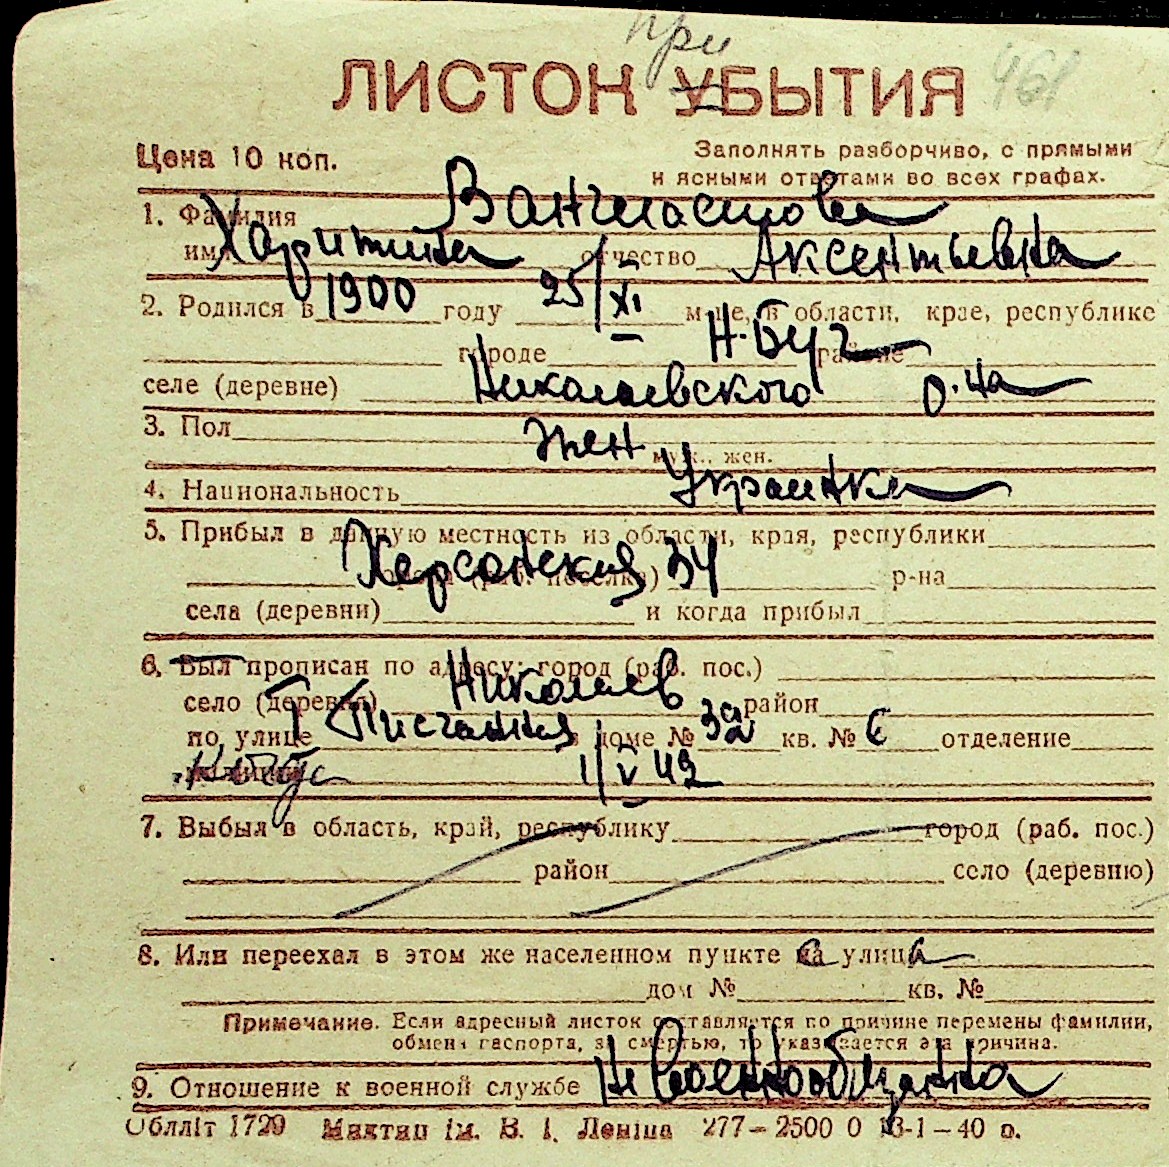 при
ЛИСТОК УБЫТИЯ 461
Цена 10 коп. Заполнять разборчиво, с прямыми
и ясными ответами во всех графах.
1. Фамилия
имя Харитина отчество Аксентьевна
2. Родился в 1900 году 25/XI м-це, в области, крае, республике
городе Н-Буг районе
селе (деревне) Николаевского р-на
3. Пол жен муж., жен.
4. Национальность Украинка
5. Прибыл в данную местность из области, края, республики
Херсонская 34 р-на
села (деревни) и когда прибыл
6. Был прописан по адресу: город (раб. пос.)
село (деревня) Николаев район
по улице доме № 3а кв. № 6 отделение
милиции 1/V 42
7. Выбыл в область, край, республику город (раб. пос.)
район село (деревню)
8. Или переехал в этом же населенном пункте на улица
дом № кв. №
Примечание. Если адресный листок составляется по причине перемены фамилии,
обмена паспорта, за смертью, то указывается эта причина.
9. Отношение к военной службе Невоеннообязанна
Обллiт 1729 ім. В. І. Леніна 277–2500 0 13-1–40 р.